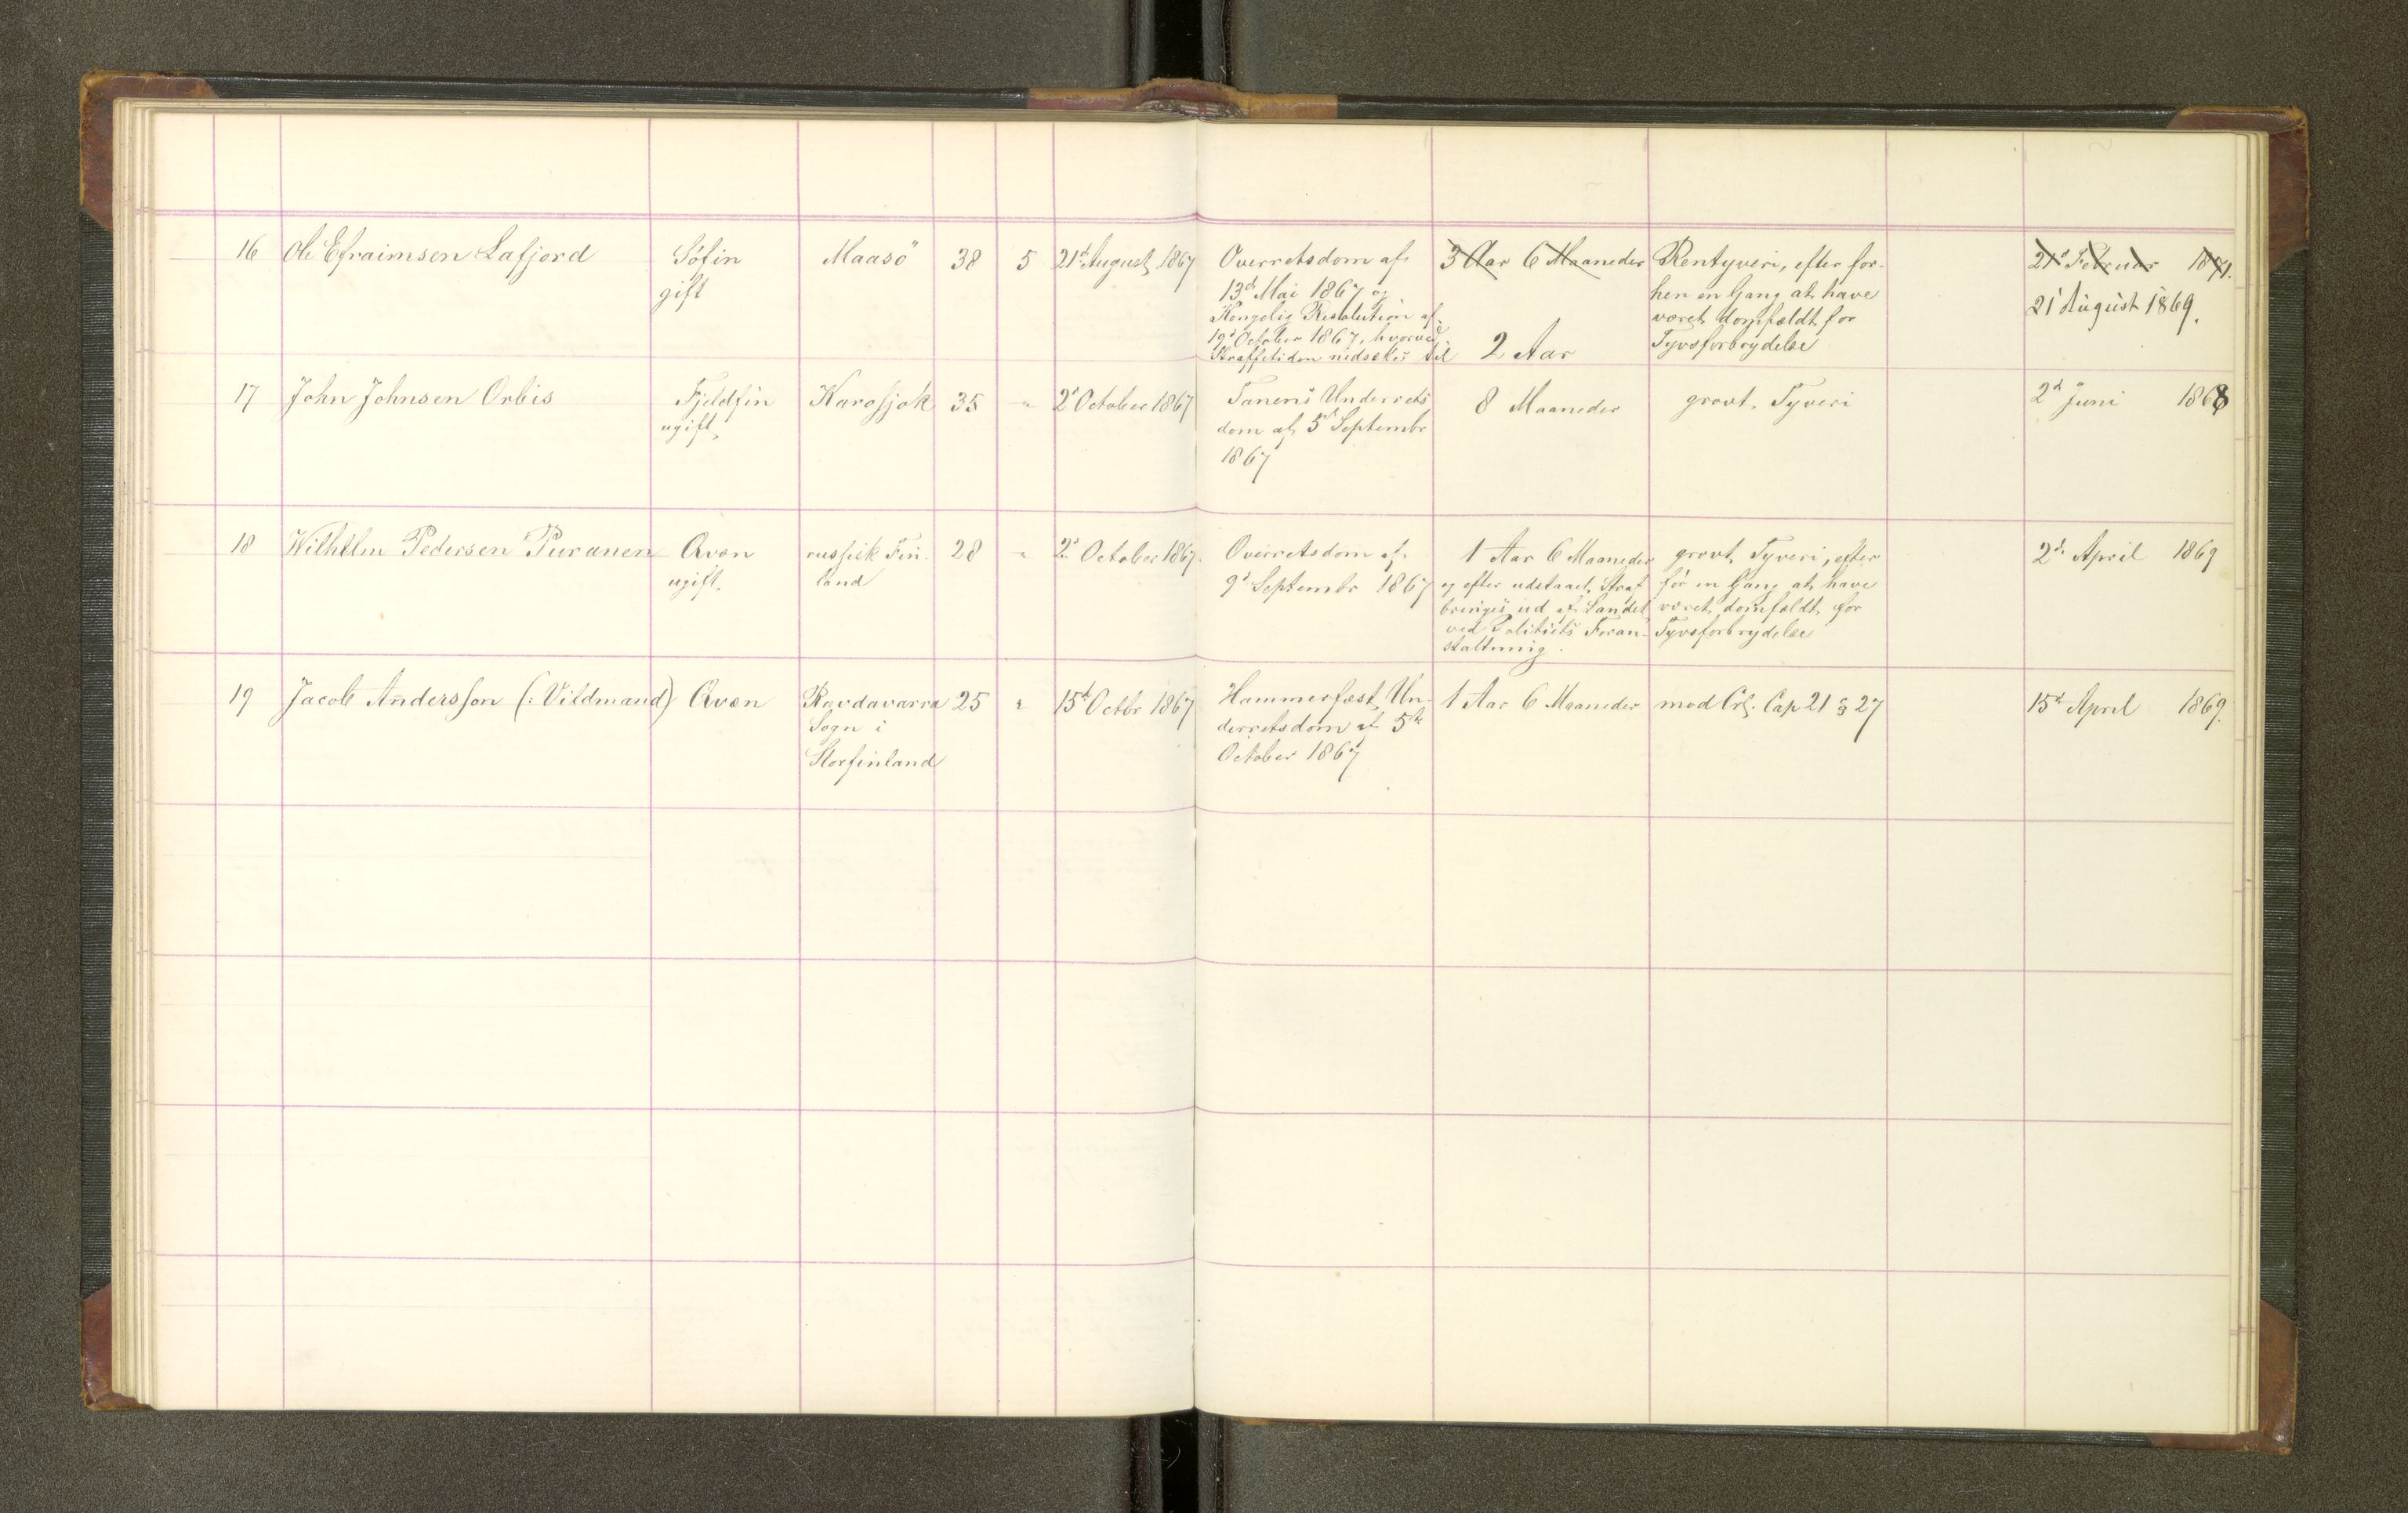 16 Ole Efraimsen Lafjord Søfin Maasö 38 5 21d August 1867 Overretsdom af 3 Aar 6 Maaneder Rentyveri, efter for- 21d Februar 1871.
gift 13d Mai 1867 og hen en Gang at have 21 August 1869.
Kongelig Resolution af været domfældt for
19d October 1867, hvorved 2 Aar Tyvsforbrydelse
Straffetiden nedsættes til
17 John Johnsen Orbis Fjeldfin Karasjok 35 " 2d October 1867 Tanens Underrets 8 Maaneder grovt Tyveri 2d Juni 1868
ugift dom af 5d Septembr
1867
18 Wilhelm Pedersen Puranen Qvæn russisk Fin- 28 " 2d October 1867. Overretsdom af 1 Aar 6 Maaneder grovt Tyveri, efter 2d April 1869
ugift land 9d Septembr 1867 og efter udstaaet Straf før en Gang at have
bringes ud af Landet været domfældt for
ved Politiets Foran- Tyvsforbrydelse
staltning.
19 Jacob Andersson (: Vildmand) Qvæn Ravdavarra 25 " 15d Octbr 1867 Hammerfest Un- 1 Aar 6 Maaneder mod Crl. Cap 21 § 27 15d April 1869.
Sogn i derretsdom af 5te
Storfinland October 1867